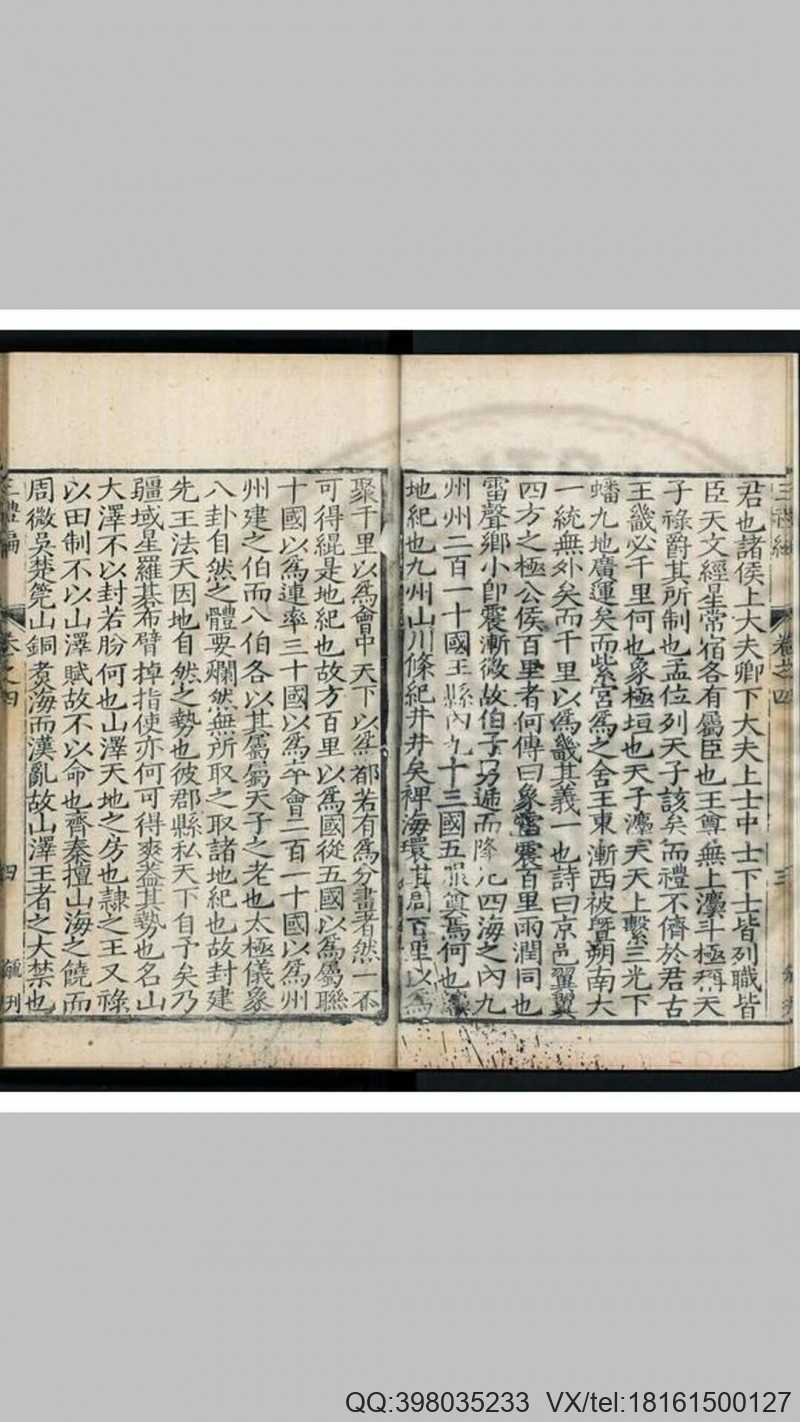 君也諸侯上大夫卿下大夫上士中士下士皆列職皆
臣天文經星常宿各有屬臣也王尊無上灋斗極稱天
子祿爵其所制也孟位列天子該矣而禮不儕於君古
王畿必千里何也象極垣也天子灋天天上繫三光下
蟠九地廣運矣而紫宮為之舍王東漸西被暨朔南大
一統無外矣而千里以為畿其義一也詩曰京邑翼翼
四方之極公侯百里者何傳曰象雷震百里雨潤同也
雷聲鄉小卽震漸微故伯子男遞而降也四海之內九
州州二百一十國王縣內九十三國五服奠焉何也
地紀也九州山川條紀井井矣裨海環其周百里以為
聚千里以為會中天下以為都若有為分畫者然一不
可得緄是地紀也故方百里以為國從五國以為屬聯
十國以為連率三十國以為卒會二百一十國以為州
州建之伯而八伯各以其屬屬天子之老也太極儀象
八卦自然之體要爛然無所取之取諸地紀也故封建
先王法天因地自然之勢也彼郡縣私天下自予矣乃
疆域星羅棊布臂掉指使亦何可得爽葢其勢也名山
大澤不以封若朌何也山澤天地之房也隷之王又祿
以田制不以山澤賦故不以命也齊秦擅山海之饒而
周微吳楚筦山銅煑海而漢亂故山澤王者之大禁也
三禮編
卷之四
四
QQ:398035233 VX/tel:18161500127